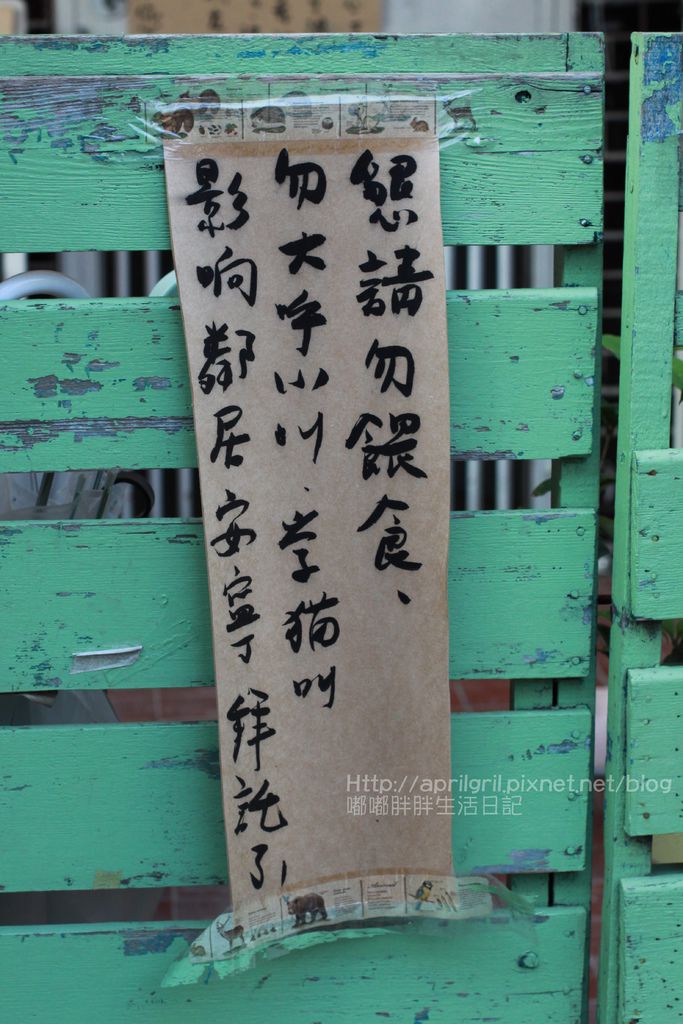 懇請勿餵食、
勿大呼小叫、学猫叫
影响鄰居安寧拜託了
Http://aprilgril.pixnet.net/blog
嘟嘟胖胖生活日記